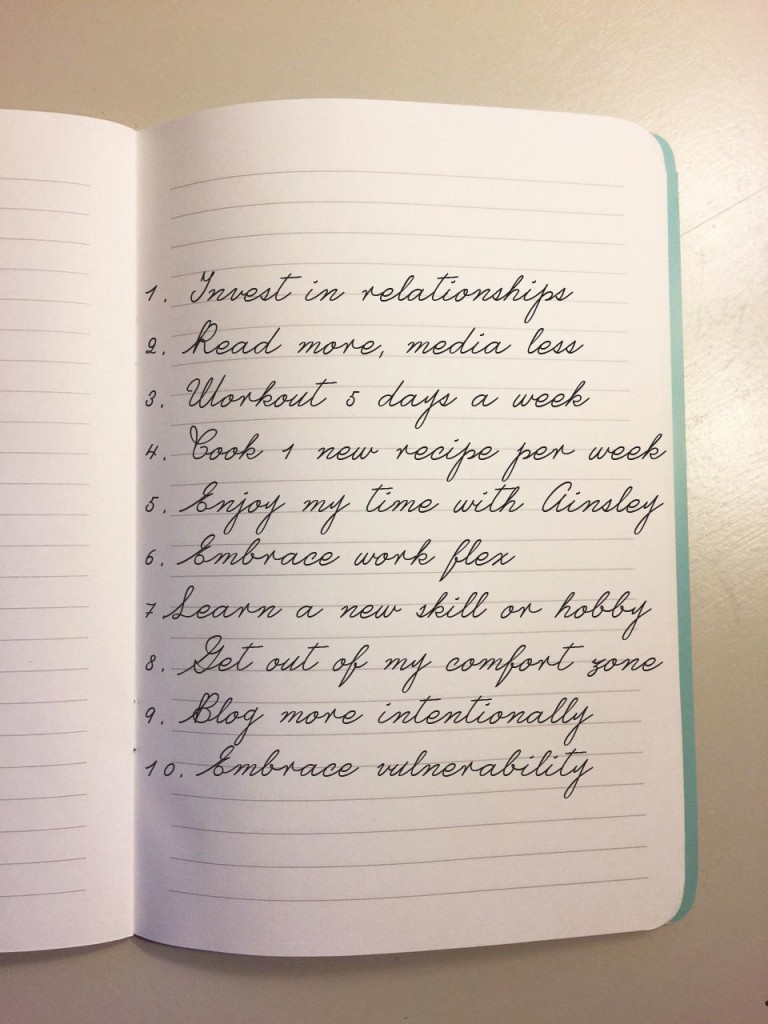 1. Invest in relationships
2. Read more, media less
3. Workout 5 days a week
4. Cook 1 new recipe per week
5. Enjoy my time with Ainsley
6. Embrace work flex
7 Learn a new skill or hobby
8. Get out of my comfort zone
9. Blog more intentionally
10. Embrace vulnerability